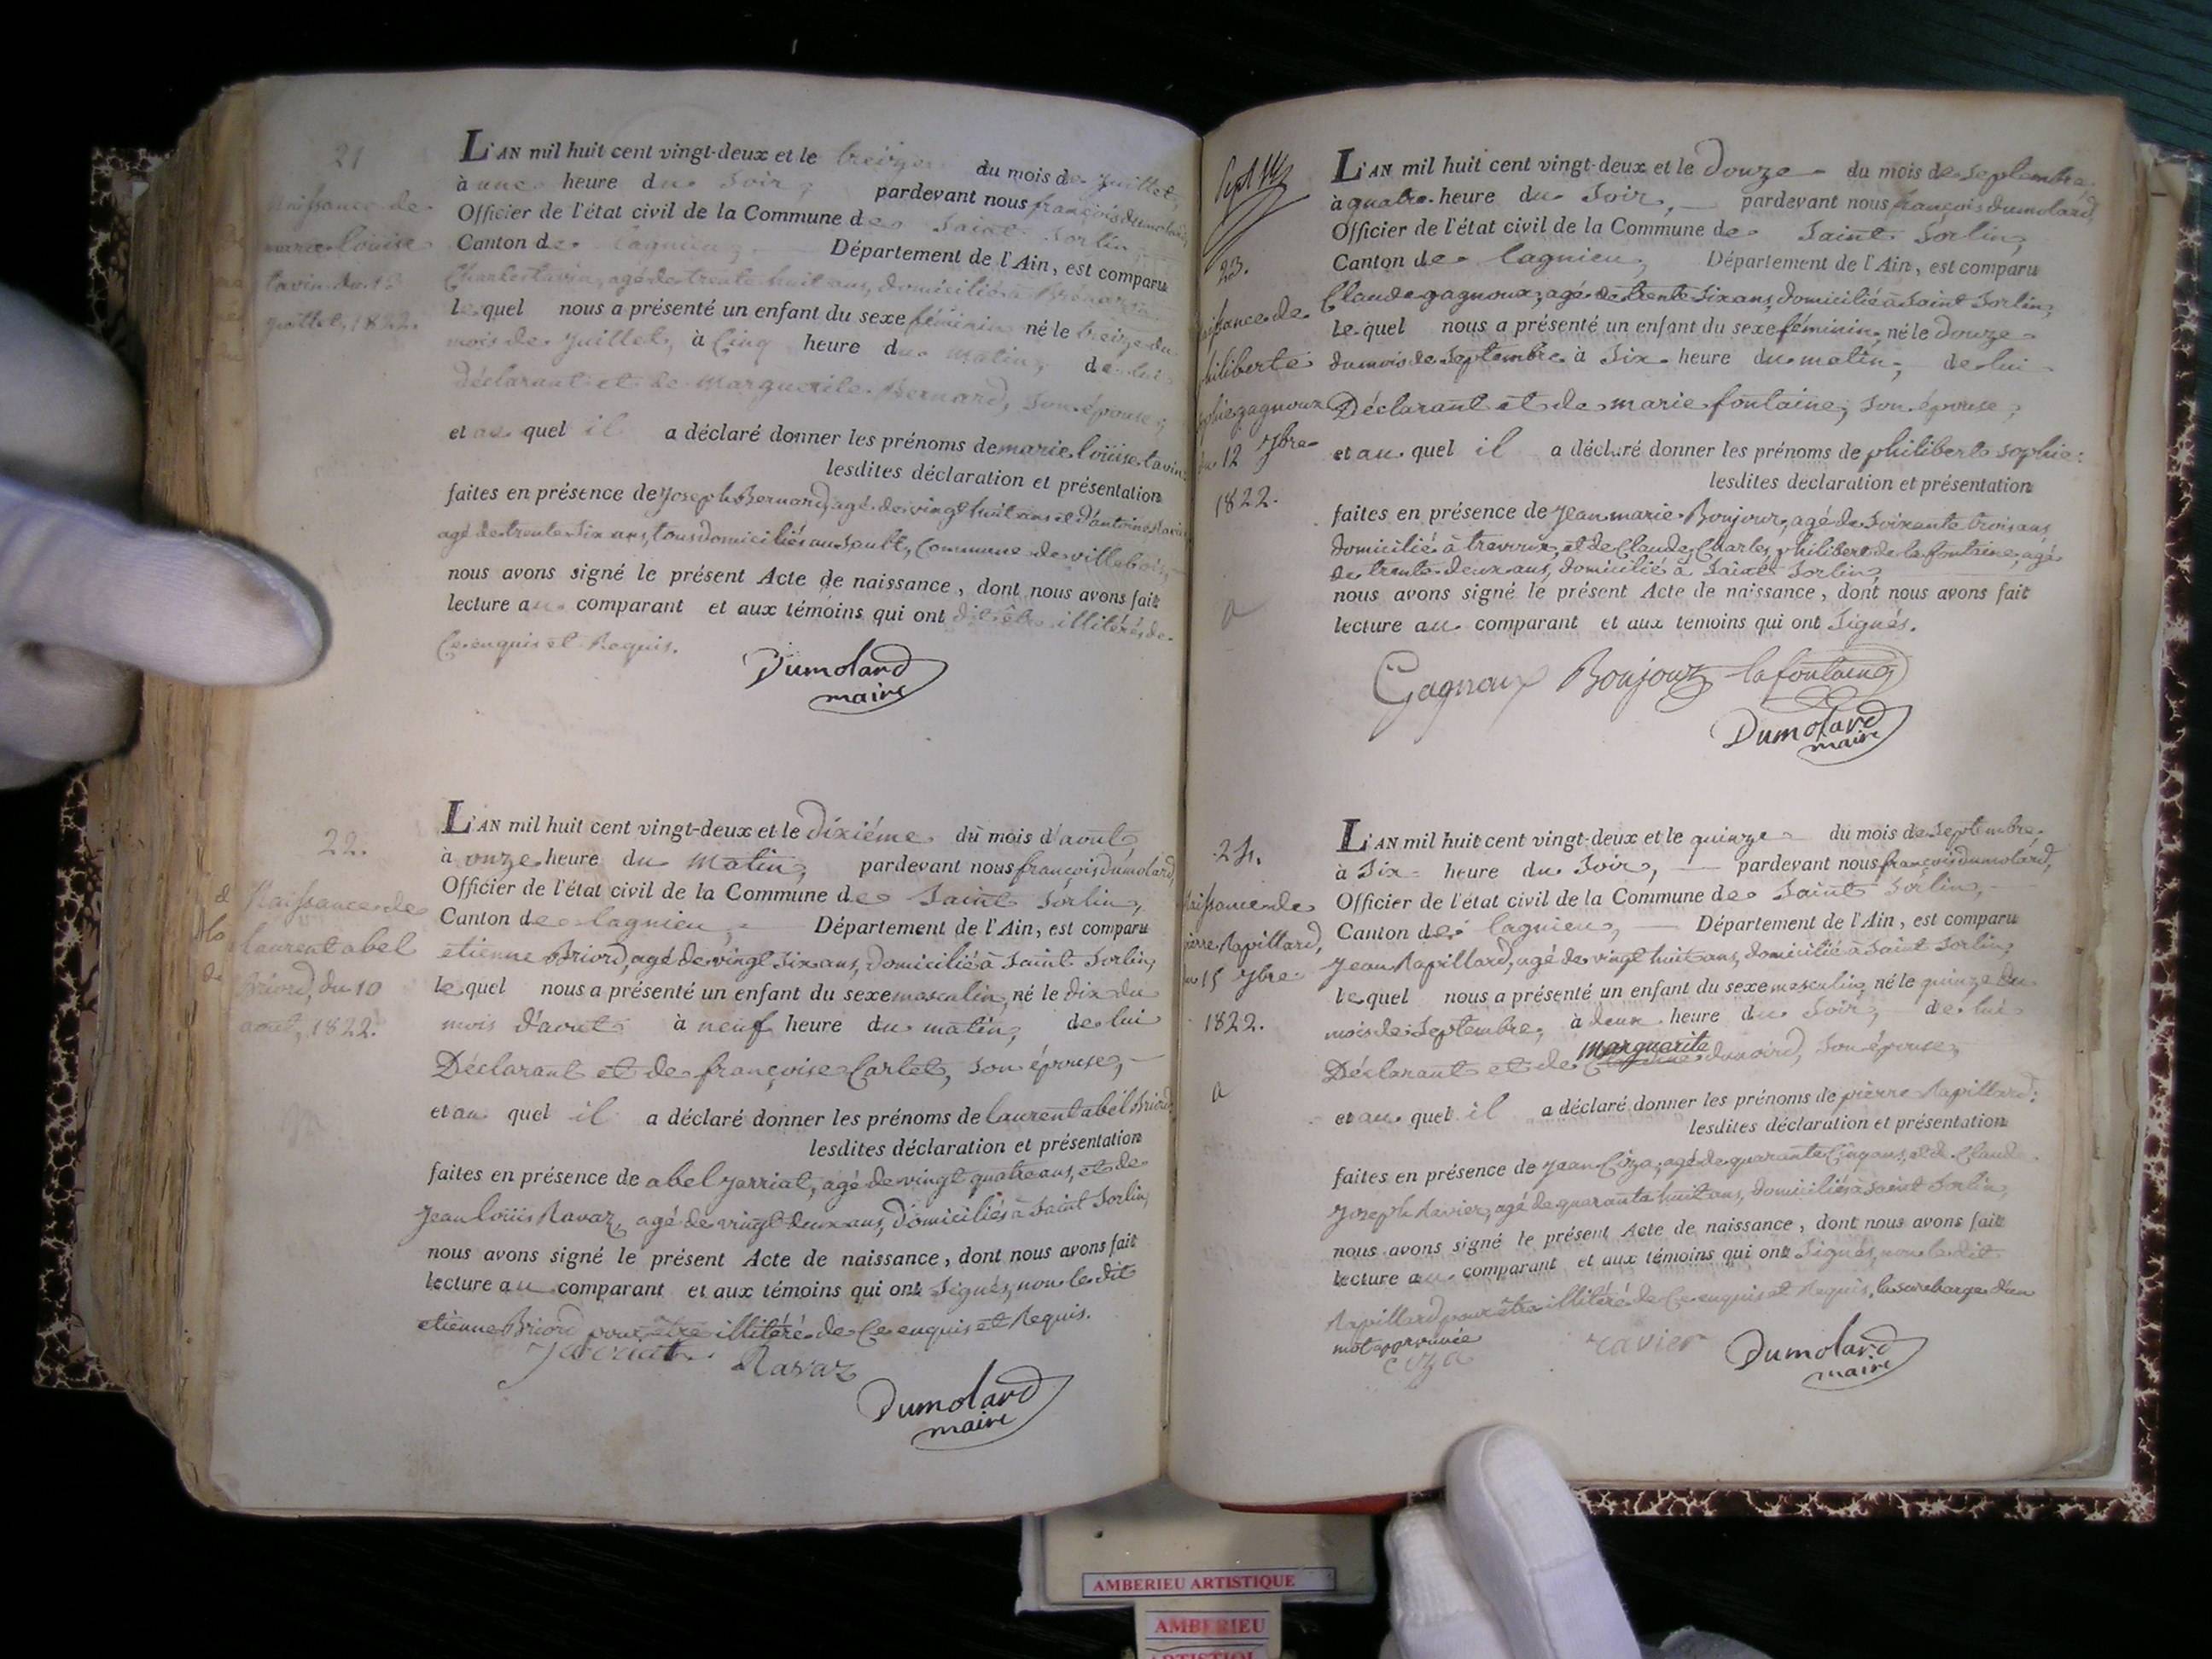 21
Naissance de
marie louise
tavin du 13
juillet, 1822.
L'AN mil huit cent vingt-deux et le treize du mois de juillet,
à une heure du soir, pardevant nous françois dumolard,
Officier de l'état civil de la Commune de Saint Sorlin,
Canton de lagnieu, Département de l'Ain, est comparu
Charles tavin, agé de trente huit ans, domicilié à
le quel nous a présenté un enfant du sexe féminin né le treize du
mois de juillet, à Cinq heure du matin, de lui
déclarant et de Marguerite Bernard, son épouse,
et au quel il a déclaré donner les prénoms de marie louise tavin
lesdites déclaration et présentation
faites en présence de joseph Bernard, agé de vingt huit ans et d'antoine
agé de trente Six ans, tous domiciliés au Sault, Commune de villebois,
nous avons signé le présent Acte de naissance, dont nous avons fait
lecture au comparant et aux témoins qui ont dit être illitérés de
Ce enquis et Requis.
Dumolard
maire
22.
Naissance de
laurent abel
Briord, du 10
aout, 1822.
L'AN mil huit cent vingt-deux et le dixiéme du mois d'aout
à onze heure du matin, pardevant nous françois dumolard,
Officier de l'état civil de la Commune de Saint Sorlin,
Canton de lagnieu, Département de l'Ain, est comparu
etienne Briord, agé de vingt Six ans, domicilié à Saint Sorlin,
le quel nous a présenté un enfant du sexe masculin, né le dix du
mois d'aout à neuf heure du matin, de lui
Déclarant et de françoise Carlet, son épouse,
et au quel il a déclaré donner les prénoms de laurent abel Briord
lesdites déclaration et présentation
faites en présence de abel jarriat, agé de vingt quatre ans, et de
jean loüis Ravaz, agé de vingt deux ans, domiciliés à Saint Sorlin,
nous avons signé le présent Acte de naissance, dont nous avons fait
lecture au comparant et aux témoins qui ont Signés, non le dit
etienne Briord pour être illitéré de Ce enquis et Requis.
Ravaz
Dumolard
maire
23.
de
philiberte
sophie gagnoux
du 12 7bre
1822.
L'AN mil huit cent vingt-deux et le Douze du mois de Septembre,
à quatre heure du Soir, pardevant nous françois dumolard,
Officier de l'état civil de la Commune de Saint Sorlin,
Canton de lagnieu, Département de l'Ain, est comparu
Claude gagnoux, agé de trente Six ans, domicilié à Saint Sorlin,
le quel nous a présenté un enfant du sexe féminin, né le douze
du mois de Septembre à Six heure du matin, de lui
Déclarant et de marie fontaine, son épouse,
et au quel il a déclaré donner les prénoms de philiberte sophie:
lesdites déclaration et présentation
faites en présence de jean marie Boujour, agé de Soixante trois ans,
domicilié à trevoux, et de Claude Charles philibert de la fontaine, agé
de trente deux ans, domicilié à Saint Sorlin,
nous avons signé le présent Acte de naissance, dont nous avons fait
lecture au comparant et aux témoins qui ont Signés.
a
Gagnoux Boujour lafontaine
Dumolard
maire
24.
Naissance de
pierre Rapillard,
du 15 7bre
1822.
a
L'AN mil huit cent vingt-deux et le quinze du mois de Septembre
à Six heure du Soir, pardevant nous françois dumolard,
Officier de l'état civil de la Commune de Saint Sorlin,
Canton de lagnieu, Département de l'Ain, est comparu
Jean Rapillard, agé de vingt huit ans, domicilié à Saint Sorlin,
le quel nous a présenté un enfant du sexe masculin, né le quinze du
mois de Septembre, à deux heure du Soir, de lui
Déclarant et de marguerite dunoird, son épouse,
et au quel il a déclaré donner les prénoms de pierre Rapillard:
lesdites déclaration et présentation
faites en présence de jean Ciza, agé de quarante Cinq ans, et de Claude
joseph Ravier, agé de quarante huit ans, domiciliés à Saint Sorlin,
nous avons signé le présent Acte de naissance, dont nous avons fait
lecture au comparant et aux témoins qui ont Signés, non le dit
Rapillard pour être illitéré de Ce enquis et Requis, la surcharge d'un
mot approuvée
ciza ravier Dumolard
maire
AMBERIEU ARTISTIQUE
AMBERIEU